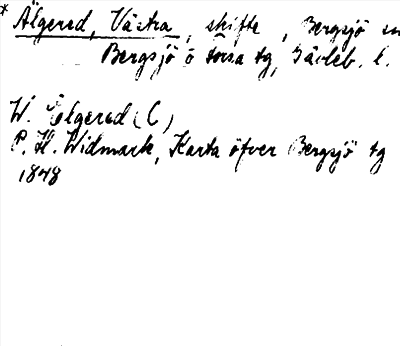 * Älgered, Västra, skifte, Bergsjö sn
Bergsjö o Forsa tg, Gävleb. l.
W. Elgered (C)
P. H. Widmark, Karta öfver Bergsjö tg
1848